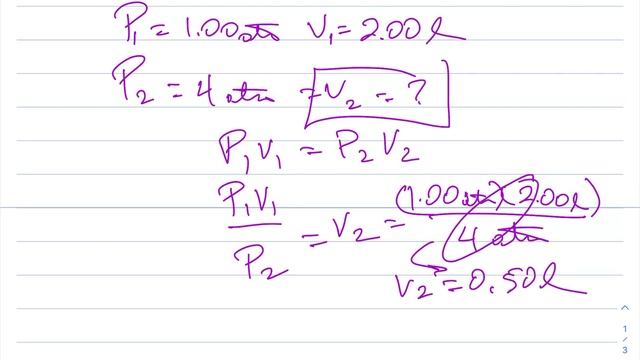 P₁ = 1.00 atm V₁ = 2.00 l
P₂ = 4 atm = V₂ = ?
P₁V₁ = P₂V₂
P₁V₁ / P₂ = V₂ = (1.00 atm)(2.00 l) / 4 atm
V₂ = 0.50 l
1
/
3